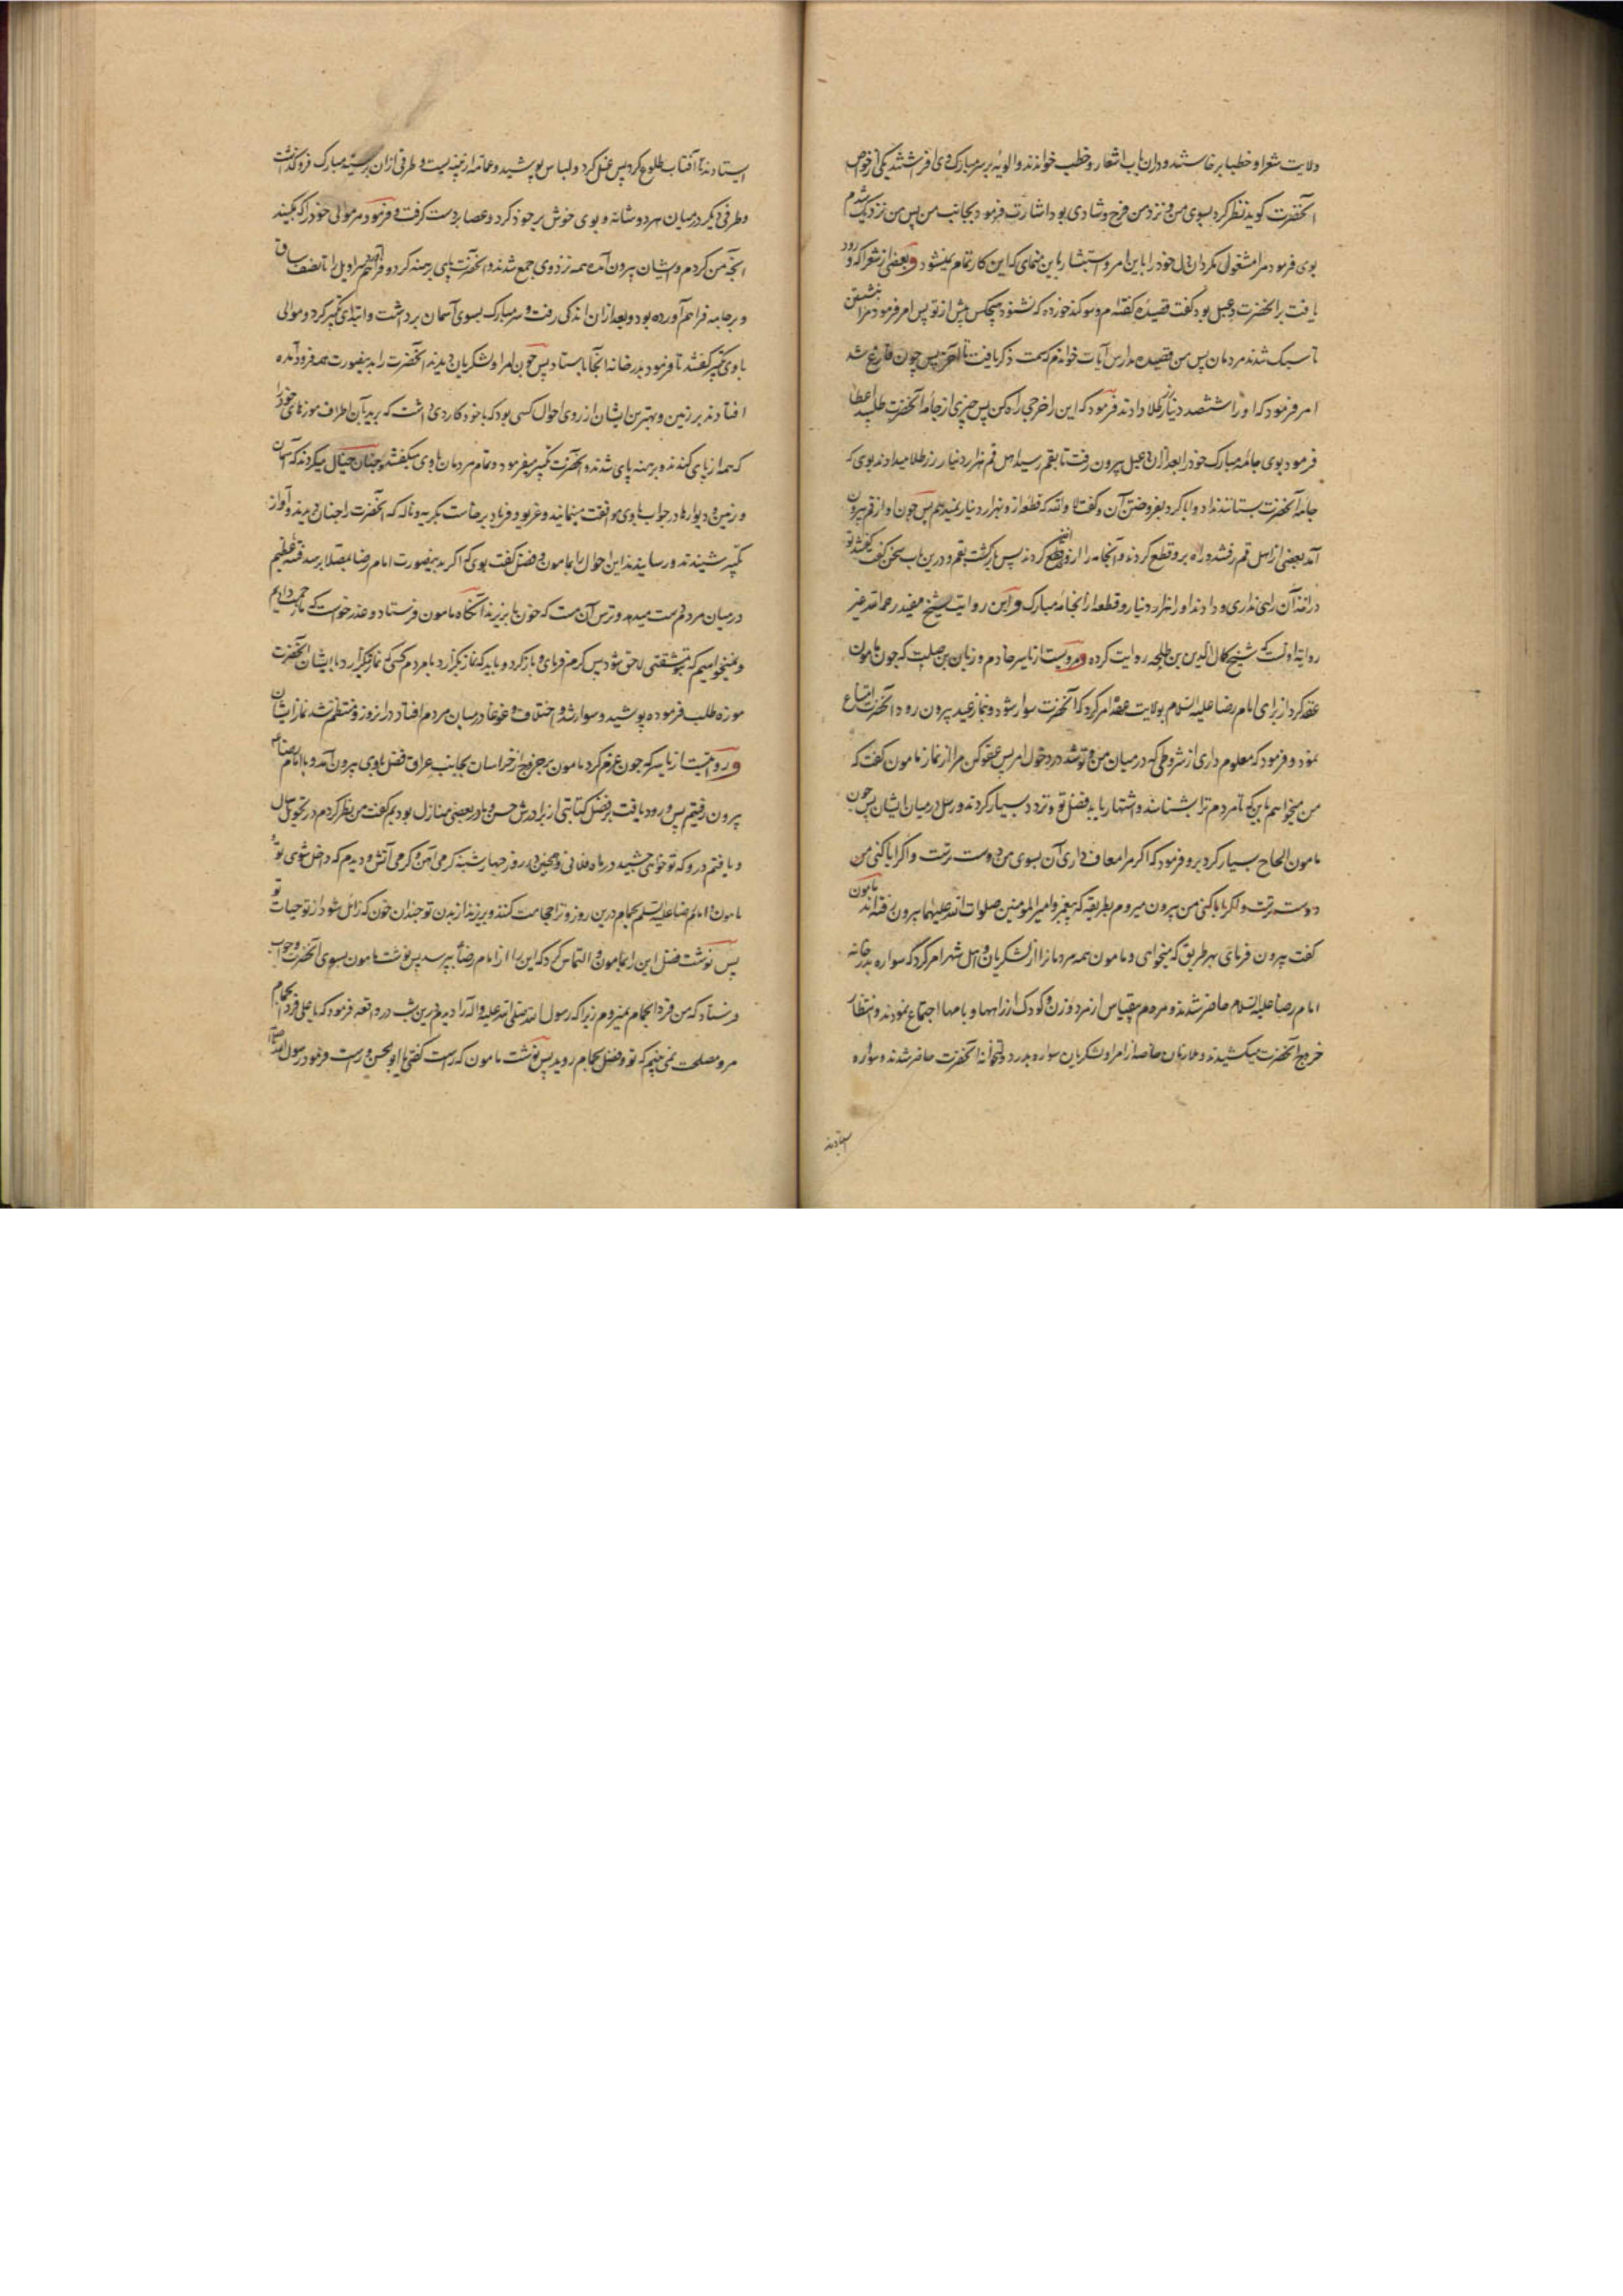 ولایت شعرا و خطبا برخاستند و دران باب اشعار و خطب خواندند و الویه بر سر مبارک وی افرشتند یکی از خواص
آنحضرت کوید نظر کرد بسوی من و نزد من فرح و شادی بود اشارت فرمود بجانب من پس من نزدیک شدم
بوی فرمود مرا مشغول مکردان دل خود را باین امر و استبشار باین منمای که این کار تمام نمیشود و بعضی از شعرا که ورود
یافت برانحضرت دعبل بود گفت قصیده گفته‌ام و سوکند خورده که نشنود هیچکس پیش از تو پس امر فرمود مرا بنشستن
تا سبک شدند مردمان پس من قصیده مدارس آیات خواندم که سمت ذکر یافت تا آخر پس چون فارغ شد
امر فرمود که او را ششصد دینار طلا دادند فرمود که این را خرجی راه کن پس چیزی از جامه آنحضرت طلبید اعطا
فرمود بوی جامه مبارک خود را بعد ازان دعبل بیرون رفت تا بقم رسید اهل قم هزار دینار زر طلا میدادند بوی که
جامه آنحضرت بستانند نداد و ابا کرد بفروختن آن و گفت لا والله که قطعه ازو بهزار دینار نمیدهم پس چون او از قم بیرون
آمد بعضی از اهل قم رفتند و راه برو قطع کردند و آنجامه را ازو قطع کردند پس بازگشت بقم و درین باب سخن گفت گفتند تو
در اخذ آن راهی نداری و دادند او را هزار دینار و قطعه از آنجامه مبارک و این روایت شیخ مفید رحمه الله غیر
روایة اولست که شیخ کمال الدین بن طلحه روایت کرده و مرویست از یاسر خادم و زیان بن صلت که چون مامون
عقد کرد از برای امام رضا علیه السلام بولایت عهد امر کرد که آنحضرت سوار شود و نماز عید بیرون رود آنحضرت امتناع
نمود و فرمود که معلوم داری از شروطی که در میان من و تو شد در دخول امر پس عفو کن مرا از نماز مامون گفت که
من میخواهم باین که تا مردم ترا بشناسند و اشتهار یابد فضل تو و تردد بسیار کردند و رسل در میان ایشان پس چون
مامون الحاح بسیار کرد برو فرمود که اگر مرا معاف داری آن بسوی من دوست ترست و اگر ابا کنی من
دوست ترست و اگر ابا کنی من بیرون میروم بطریقه که پیغمبر و امیرالمومنین صلوات الله علیهما بیرون رفته‌اند مامون
گفت بیرون فرمای بهر طریق که میخواهی و مامون همه مردمانرا از لشکریان و اهل شهر امر کرد که سواره بدر خانه
امام رضا علیه السلام حاضر شدند و مردم بیقیاس از مرد و زن و کودک از راهها و بامها اجتماع نمودند و انتظار
خروج آنحضرت میکشیدند و ملازمان خاصه از امرا و لشکریان سواره بدر دولتخانه آنحضرت حاضر شدند و سواره
ایستادند
ایستادند تا آفتاب طلوع کرد پس غسل کرد و لباس پوشید و عمامه از پنبه بست و طرفی ازان بر سینه مبارک فرو گذاشت
و طرفی دیگر در میان هر دو شانه و بوی خوش بر خود کرد و عصا بردست گرفت و فرمود مر موالی خود را که بکنید
آنچه من کردم و ایشان بیرون آمده همه نزد وی جمع شدند و آنحضرت پای برهنه کرد و سراویل را تا نصف ساق
و بر جامه فراهم آورده بود و بعد ازان اندکی رفت و سر مبارک بسوی آسمان برداشت و ابتدای تکبیر کرد و موالی
با وی تکبیر گفتند تا فرمود بدر خانه آنجا بایستاد پس چون امرا و لشکریان دیدند آنحضرت را بدینصورت همه فرود آمده
افتادند بر زمین و بهترین ایشان از روی احوال کسی بود که با خود کاردی داشت که برید بآن اطراف موزهای خود را
که همه از پای کندند و برهنه پای شدند و آنحضرت تکبیر میفرمود و تمام مردمان با وی میگفتند و چنان خیال میکردند که آسمان
و زمین و دیوارها در جواب با وی موافقت مینمایند و غریو و فریاد برخاست بگریه و ناله که آنحضرت را چنان دیدند و آواز
تکبیر شنیدند و رسانیدند این احوال را بمامون و فضل گفت بوی که اگر بدینصورت امام رضا بمصلا برسد فتنه عظیم
در میان مردم دست میدهد و ترس آن هست که خونها بریزند آنگاه مامون فرستاد و عذر خواست که ما زحمت دادیم
و نمیخواهیم که بتو مشقتی لاحق شود پس کرم فرمای و بازگرد و باید که نماز بگزارد با مردم کسی که نماز میگزارد با ایشان آنحضرت
موزه طلب فرموده پوشید و سوار شد و اختلاف و غوغا در میان مردم افتاد درانروز و منتظم نشد نماز ایشان
و روایتست از یاسر که چون عزم کرد مامون بر خروج از خراسان بجانب عراق فضل با وی بیرون آمد و با امام رضا ع
بیرون رفتیم پس ورود یافت بر فضل کتابتی از برادرش حسن و ما در بعضی منازل بودیم گفت من نظر کردم در تحویل سال
و یافتم درو که تو خواهی چشید در ماه فلانی و همچنین در روز چهارشنبه گرمی آهن و گرمی آتش و دیدم که داخل شوی تو و
مامون و امام رضا علیه السلم بحمام درین روز و ترا حجامت کنند و بریزند از بدن تو چندان خون که زائل شود از تو حیات تو
پس نوشت فضل این را بمامون و التماس کرد که این را از امام رضا ع بپرسد پس نوشت مامون بسوی آنحضرت و جواب
فرستاد که من فردا بحمام نمیروم زیرا که رسول الله صلی الله علیه و اله را دیدم درین شب در واقعه فرمود که یا علی فردا بحمام
مرو مصلحت نمی‌بینم که تو و فضل بحمام روید پس نوشت مامون که راست گفتی یا ابوالحسن و راست فرمود رسول الله صلعم